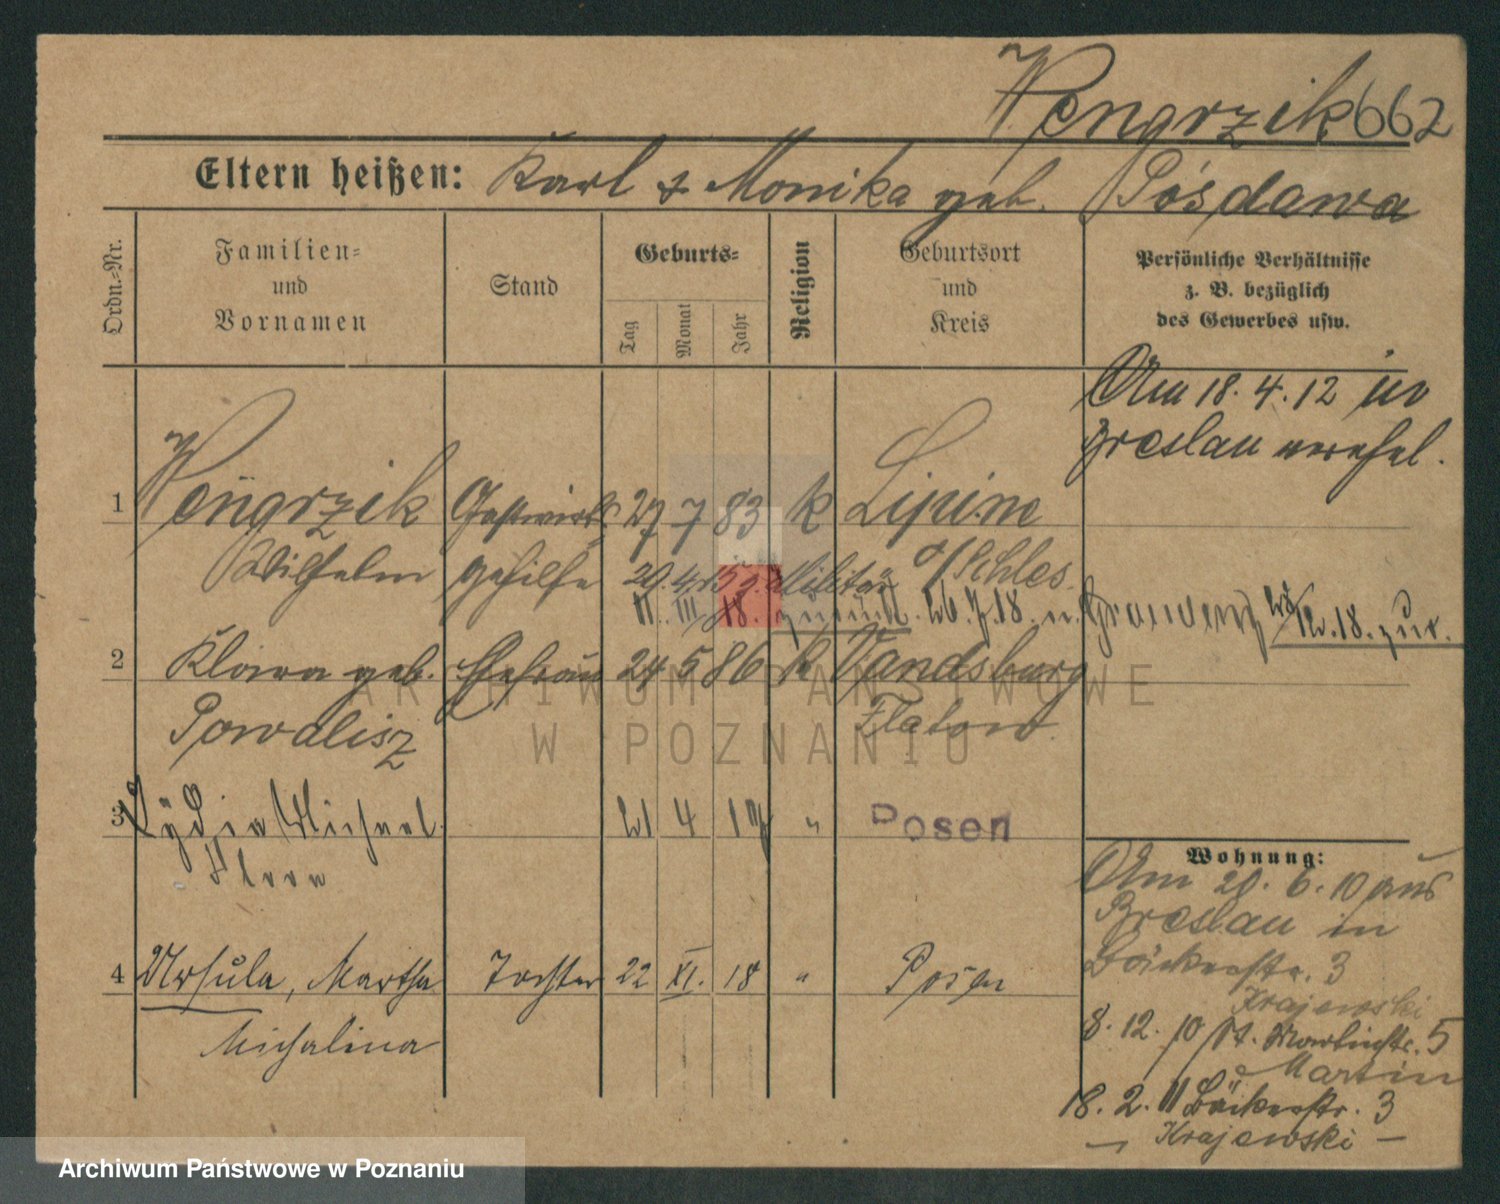 Wengrzik 662
Eltern heißen: Karl & Monika geb. Posdawa
Ordn.-Nr.
Familien-
und
Vornamen
Stand
Geburts-
Tag
Monat
Jahr
Religion
Geburtsort
und
Kreis
Persönliche Verhältnisse
z. B. bezüglich
des Gewerbes usw.
Am 18. 4. 12 in
Breslau verehel.
1 Wengrzik Gastwirts 27 7 83 k Lipine
Wilhelm gehilfe 29. 4. 15 z. Militär O/Schles.
11. III. 18. zurück. 26. 7. 18. n. Graudenz 12. 18. zur.
2 Klara geb. Ehefrau 24 5 86 k Vandsburg
Powalisz Flatow
3 Lydia Michael 21 4 17 " Posen
Klara
4 Ursula, Martha Tochter 22 XI. 18 " Posen
Michalina
Wohnung:
Am 20. 6. 10 aus
Breslau in
Bäckerstr. 3
Krajewski
8. 12. 10 St. Martinstr. 5
Martin
18. 2. 11 Bäckerstr. 3
— Krajewski —
ARCHIWUM PAŃSTWOWE
W POZNANIU
Archiwum Państwowe w Poznaniu